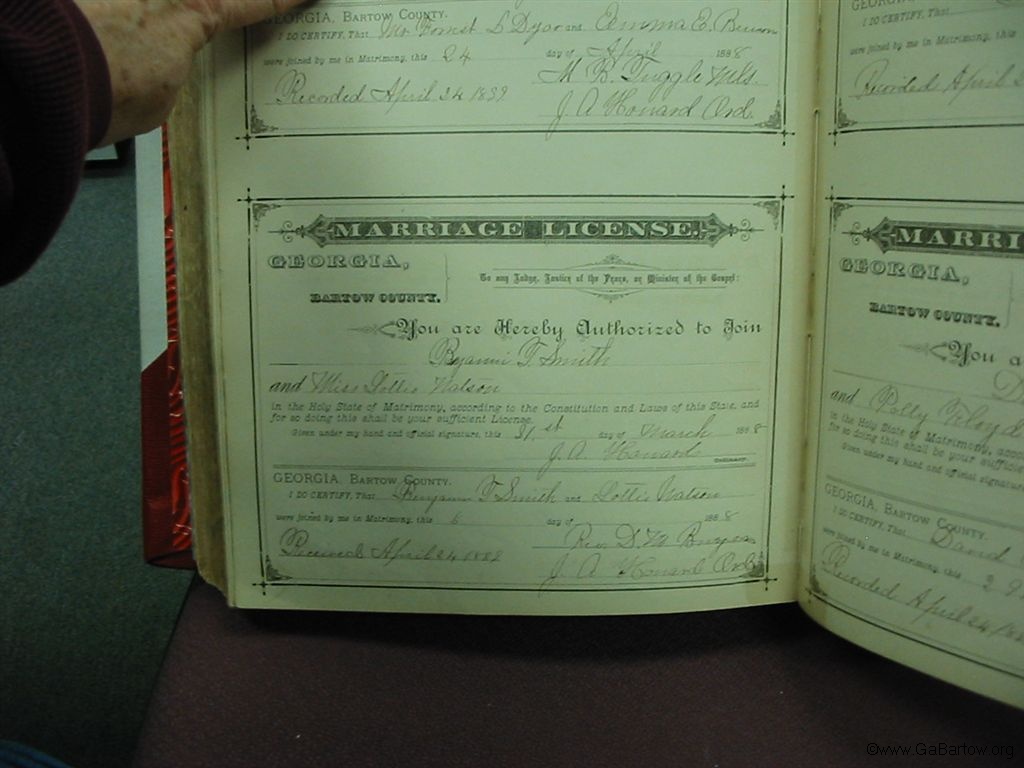 GEORGIA, BARTOW COUNTY.
I DO CERTIFY, That Mr Fornet L Dyar and Emma E.
were joined by me in Matrimony, this 24 day of April 1888
M. B. Tuggle MG.
Recorded April 24 1889
J A Howard Ord.
MARRIAGE LICENSE.
GEORGIA,
BARTOW COUNTY.
To any Judge, Justice of the Peace, or Minister of the Gospel:
You are Hereby Authorized to Join
T. Smith
and Miss Lottie Watson
in the Holy State of Matrimony, according to the Constitution and Laws of this State, and
for so doing this shall be your sufficient License.
Given under my hand and official signature, this 31st day of March 1888
J. A. Howard
Ordinary.
GEORGIA, BARTOW COUNTY.
I DO CERTIFY, That T Smith and Lottie Watson
were joined by me in Matrimony, this 6 day of 1888
Rev D
Recorded April 24 1889
J A Howard Ord
GEORGIA,
were joined by me in
Recorded April 2
MARRI
GEORGIA,
BARTOW COUNTY.
You a
D
and Polly Floyd
in the Holy State of Matrimony,
for so doing this shall be your sufficient
Given under my hand and official signatur
GEORGIA, BARTOW COUNTY.
I DO CERTIFY, That David
were joined by me in Matrimony, this 29
Recorded April 24
©www.GaBartow.org